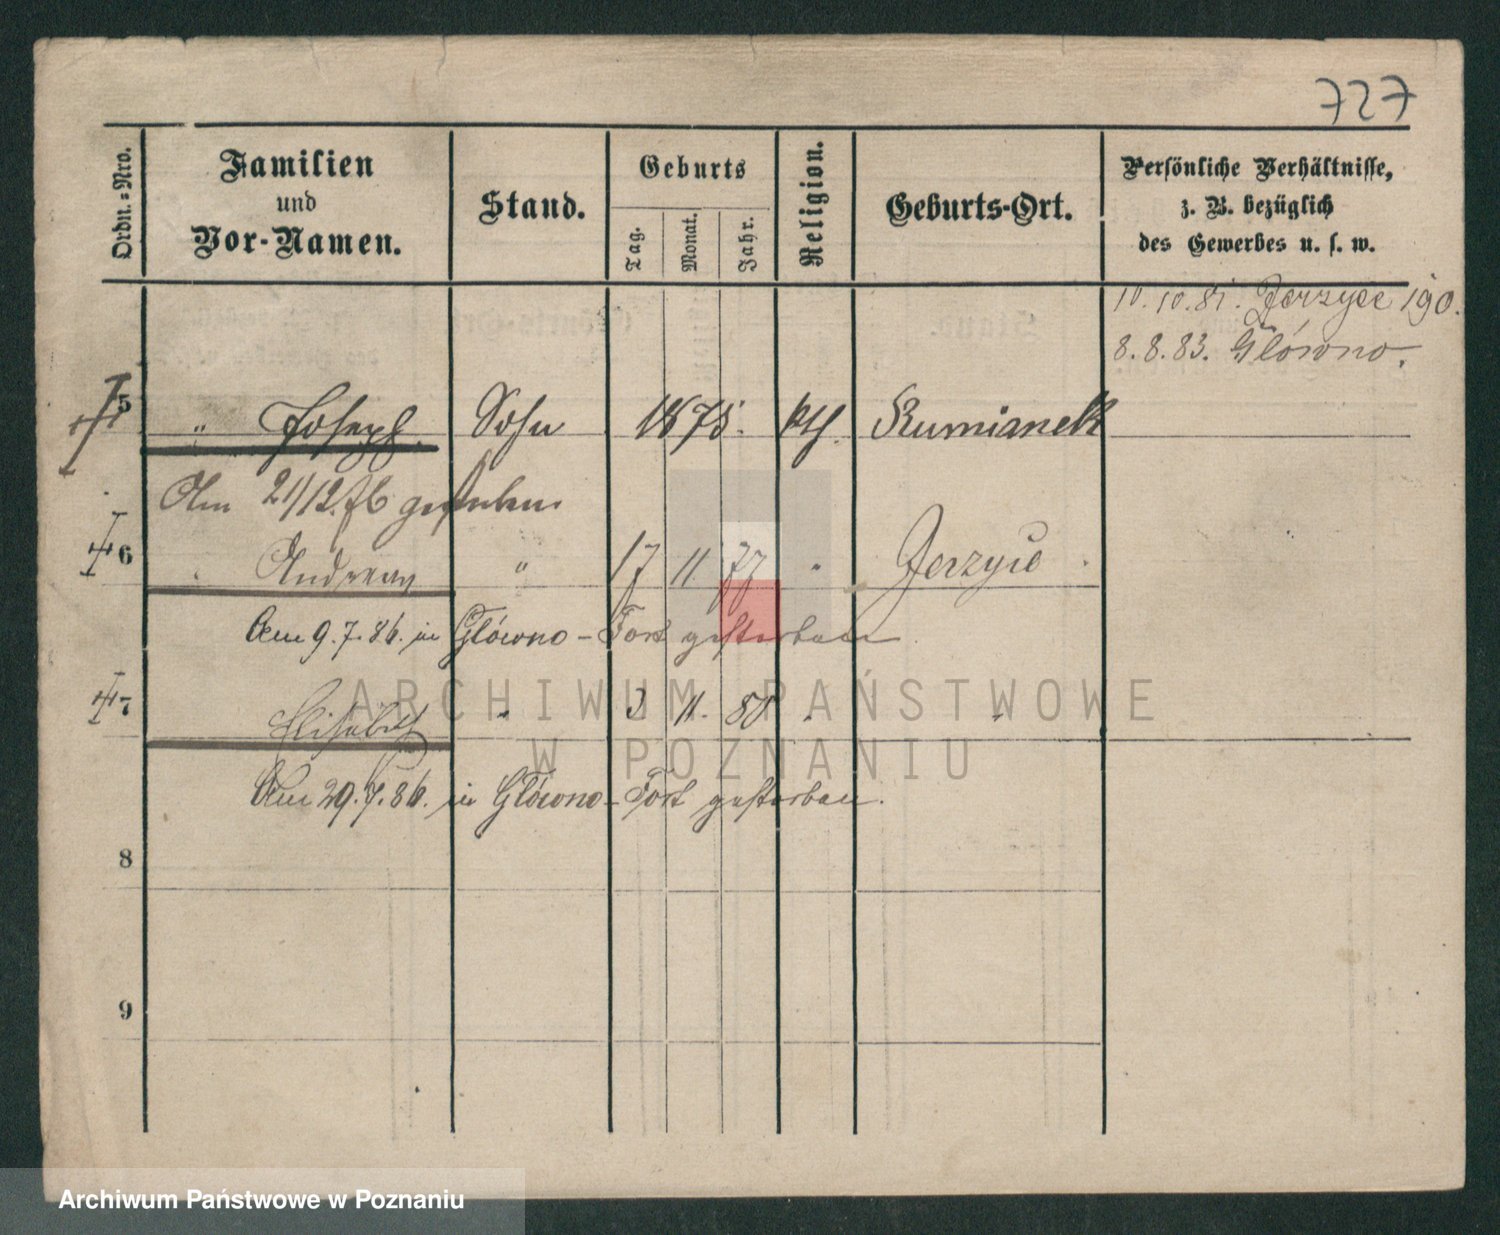 727
Ordn.=Nro.
Familien
und
Vor-Namen.
Stand.
Geburts
Tag.
Monat.
Jahr.
Religion.
Geburts-Ort.
Persönliche Verhältnisse,
z. B. bezüglich
des Gewerbes u. s. w.
10. 10. 81. Jerzyce 190.
8. 8. 83. Główno.
5 " Joseph. Sohn 1875. kth. Rumianek
Am 21/12.76 gestorben
6 " Andreas " 17 11. 77 " Jerzyce
Am 9. 7. 86. in Główno - Fort gestorben.
7 Elisabeth " 3 11. 80 " "
Am 29. 7. 86. in Główno - Fort gestorben.
8
9
ARCHIWUM PAŃSTWOWE
W POZNANIU
Archiwum Państwowe w Poznaniu